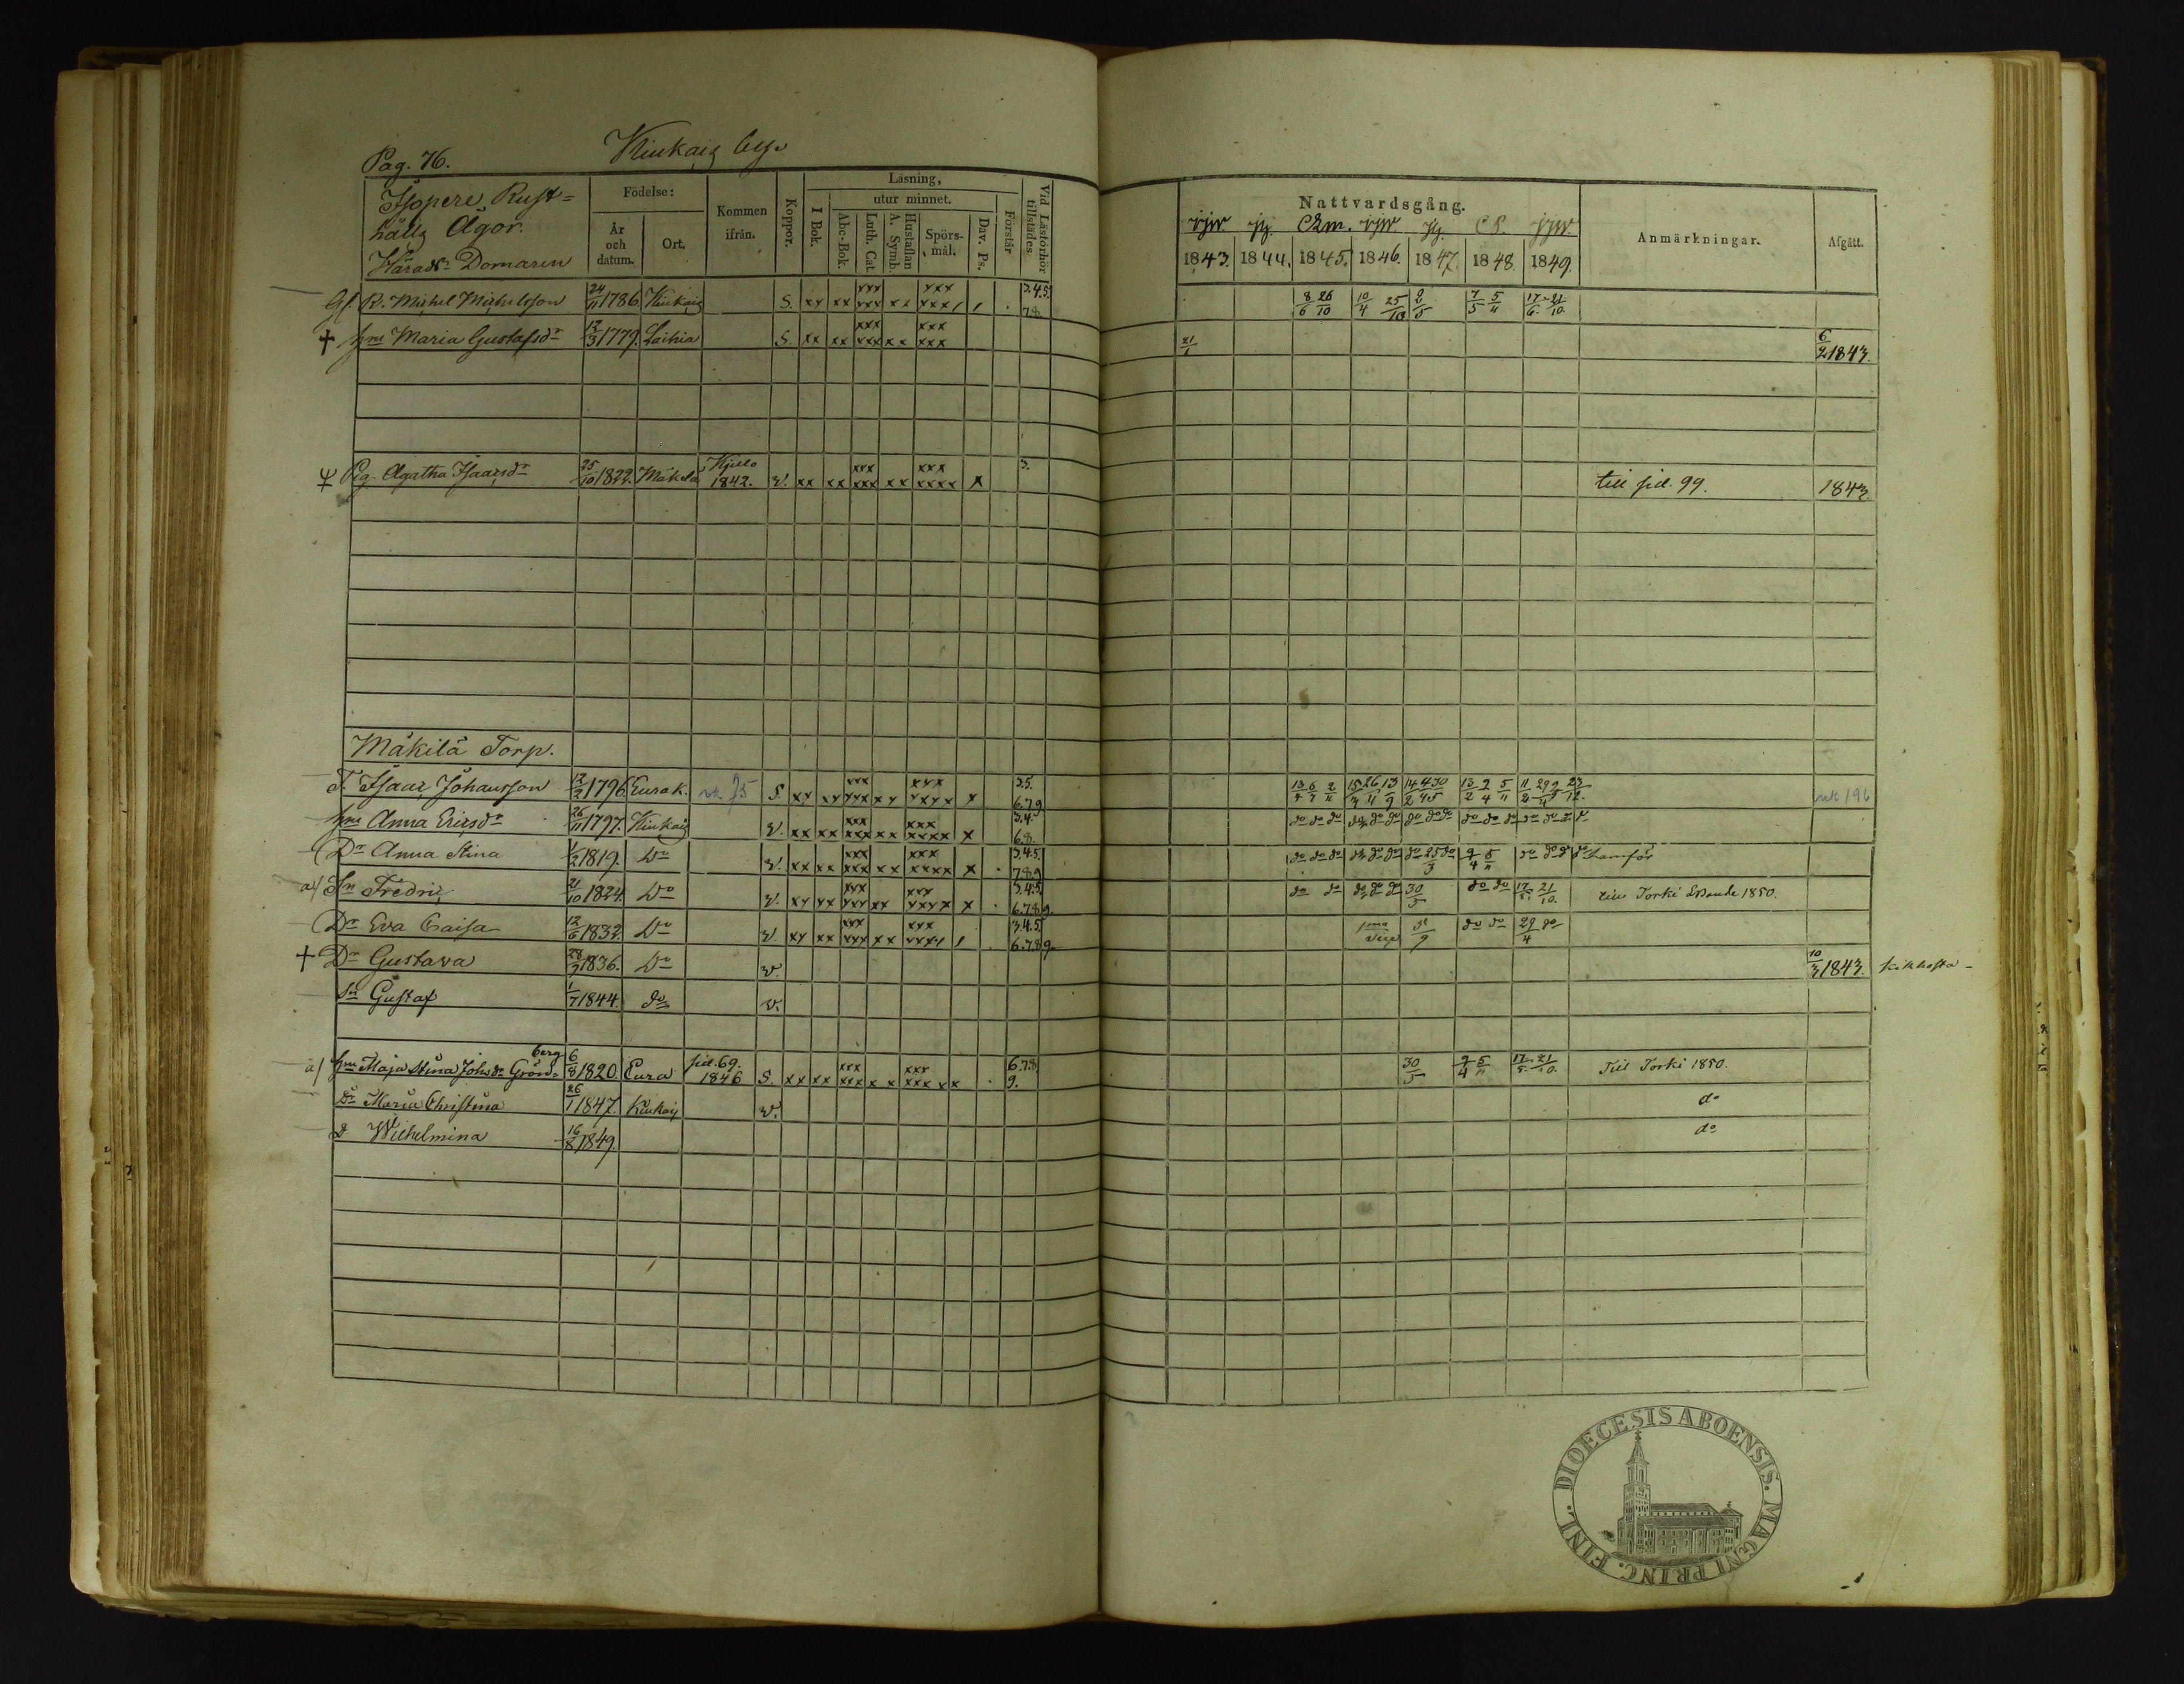 Pag. 76.
Kiukais by.
Isopere Rust=
hålls Ägor.
Härads Domaren
Födelse:
År och datum.
Ort.
Kommen ifrån.
Koppor.
Läsning,
utur minnet.
I Bok.
Abc-Bok.
Luth. Cat.
Hustaflan A. Symb.
Spörs-mål.
Dav. Ps.
Förstår
Vid Läsförhör tillstädes
Nattvardsgång.
1843. 1844. 1845. 1846. 1847. 1848. 1849.
Anmärkningar.
Afgått.
R. Michel Michelsson 24/11 1786. Kiukais S. xx xx xxx xxx xx xxx xxx 3.4.5. 7.8. 8/6 26/10 10/4 25/10 2/5 7/5 5/11 17/6 21/10
† Hru Maria Gustafsdr 12/3 1779. Laihia S. xx xx xxx xxx xx xxx xxx 21/1 6/2 1843.
Pig. Agatha Isacsdr 25/10 1822. Mäkelä 1842. v. xx xx xxx xxx xx xxx xxxx x 3. till sid. 99. 1843.
Mäkilä Torp.
T. Isaac Johansson 12/2 1796. Eurak. S. xx xx xxx xxx xx xxx xxxx x 3.5. 6.7.9
Hru Anna Ericsdr 26/11 1797. Kiukais v. xx xx xxx xxx xx xxx xxxx x 3.4. 6.8. do do do do do do do do do do do do
Dr Anna Stina 1/2 1819. Do v. xx xx xxx xxx xx xxx xxxx x 3.4.5. 7.8.9 do do do do do do do 25/3 do 9/4 5/11
a/ Sn Fredric 21/10 1824. Do v. xx xx xxx xxx xx xxx xxxx x 3.4.5. 6.7.8.9. do do do do do 30/5 do do 17/5 21/10 till Torki 1850.
Dr Eva Caisa 12/6 1832. Do v. xx xx xxx xxx xx xxx xxxx 3.4.5 6.7.8.9. do do 29/4 do
† Dr Gustava 28/9 1836. Do v. 10/3 1843. kikhosta
Sn Gustaf 1/7 1844. do v.
a/ Hru Maja Stina Johsdr Grönberg 6/8 1820. Eura sid. 69. 1846 S. xx xx xxx xxx xx xxx xxx x 6.7.8 9. 30/5 9/4 5/11 17/5 21/10 Till Torki 1850.
Dr Maria Christina 26/1 1847. Kiukais v. do
D Wilhelmina 16/8 1849. do
DIOECESIS ABOENSIS. MAGNI PRINC. FINL.